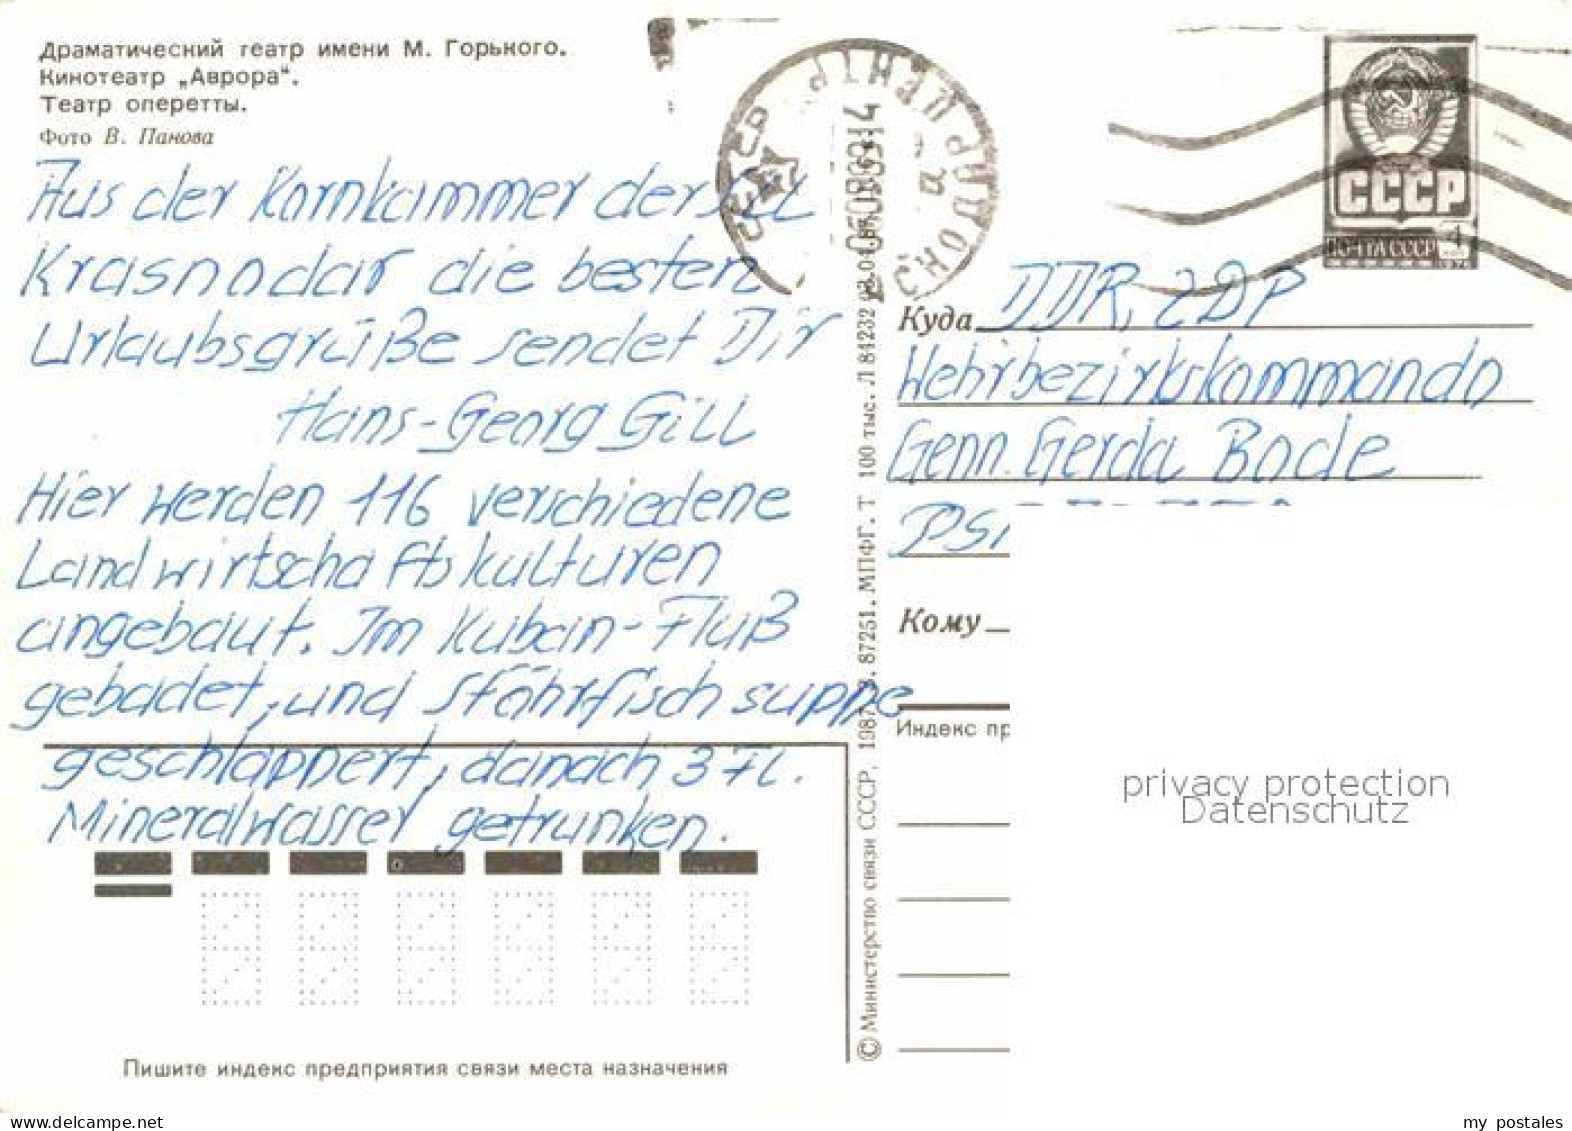 Драматический театр имени М. Горького.
Кинотеатр „Аврора“.
Театр оперетты.
Фото В. Панова
Aus der Kornkammer der SU
Krasnodar die besten
Urlaubsgrüße sendet Dir
Hans-Georg Gill
Hier werden 116 verschiedene
Landwirtschaftskulturen
angebaut. Im Kuban-Fluß
gebadet, und Stöhrfischsuppe
geschlappert, danach 3 Fl.
Mineralwasser getrunken.
Пишите индекс предприятия связи места назначения
© Министерство связи СССР, 1987. З. 87251. МПФГ. Т 100 тыс. Л 84232
СССР
ПОЧТА СССР
Куда DDR,
Wehrbezirkskommando
Genn. Gerda Bode
Кому
Индекс пр
privacy protection
Datenschutz
my postales